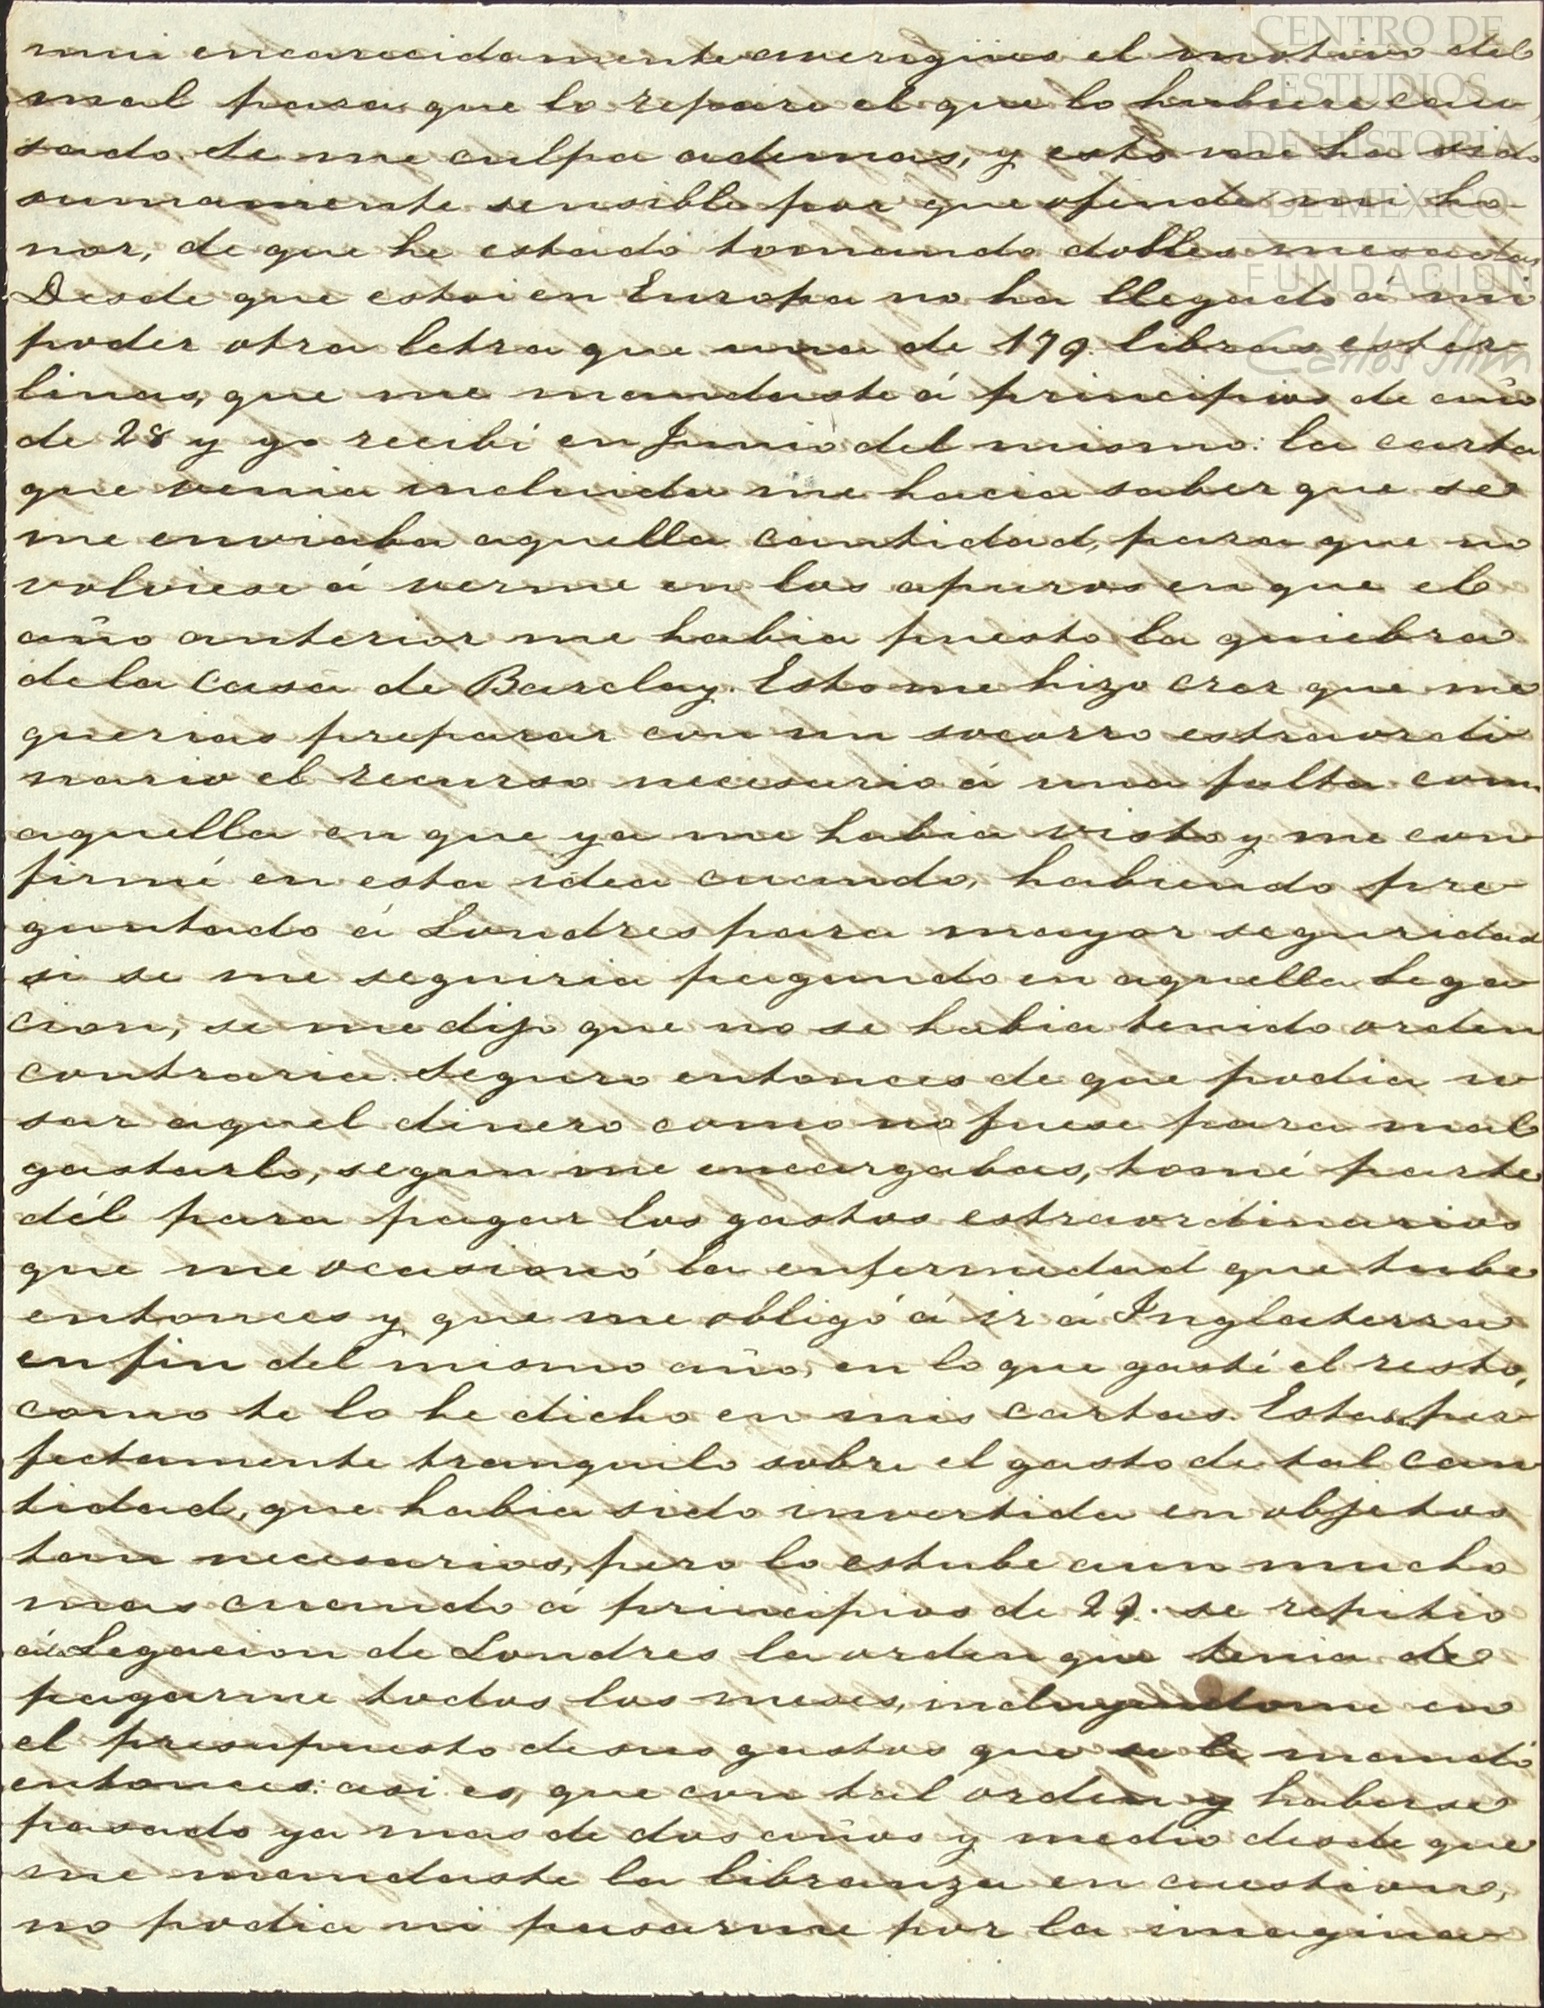 mui encarecidamente averigües el motivo del
mal para que lo repare el que lo hubiere cau
sado. Se me culpa ademas, y esto me ha sido
sumamente sensible por que ofende mi ho-
nor, de que he estado tomando dobles mesadas
Desde que estoi en Europa no ha llegado a mi
poder otra letra que una de 179. libras ester-
linas, que me mandaste á principios de año
de 28 y yo recibí en Junio del mismo: la carta
que venia incluida me hacia saber que se
me enviaba aquella cantidad, para que no
volviese á verme en los apuros en que el
año anterior me habia puesto la quiebra
de la casa de Barclay. Esto me hizo creer que me
querias preparar con un socorro estraordi
nario el recurso necesario á una falta como
aquella en que ya me habia visto y me con
firmé en esta idea cuando, habiendo pre-
guntado á Londres para mayor seguridad
si se me seguiria pagando en aquella Lega
cion, se me dijo que no se habia tenido orden
contraria. Seguro entonces de que podia u
sar aquel dinero como no fuese para mal
gastarlo, segun me encargabas, tomé parte
dél para pagar los gastos estraordinarios
que me ocasionó la enfermedad que tube
entonces y que me obligó á ir á Inglaterra
en fin del mismo año, en lo que gasté el resto,
como te lo he dicho en mis cartas. Estaba per
fectamente tranquilo sobre el gasto de tal can
tidad, que habia sido invertida en objetos
tan necesarios, pero lo estube aun mucho
mas cuando á principios de 29. se repitio
á la Legacion de Londres la orden que tenia de
pagarme todos los meses, incluyendome en
el presupuesto de sus gastos que se le mandó
entonces: asi es, que con tal orden y haberse
pasado ya mas de dos años y medio desde que
me mandaste la libranza en cuestion,
no podia ni pasarme por la imagina
CENTRO DE
ESTUDIOS
DE HISTORIA
DE MEXICO
FUNDACIÓN
Carlos Slim